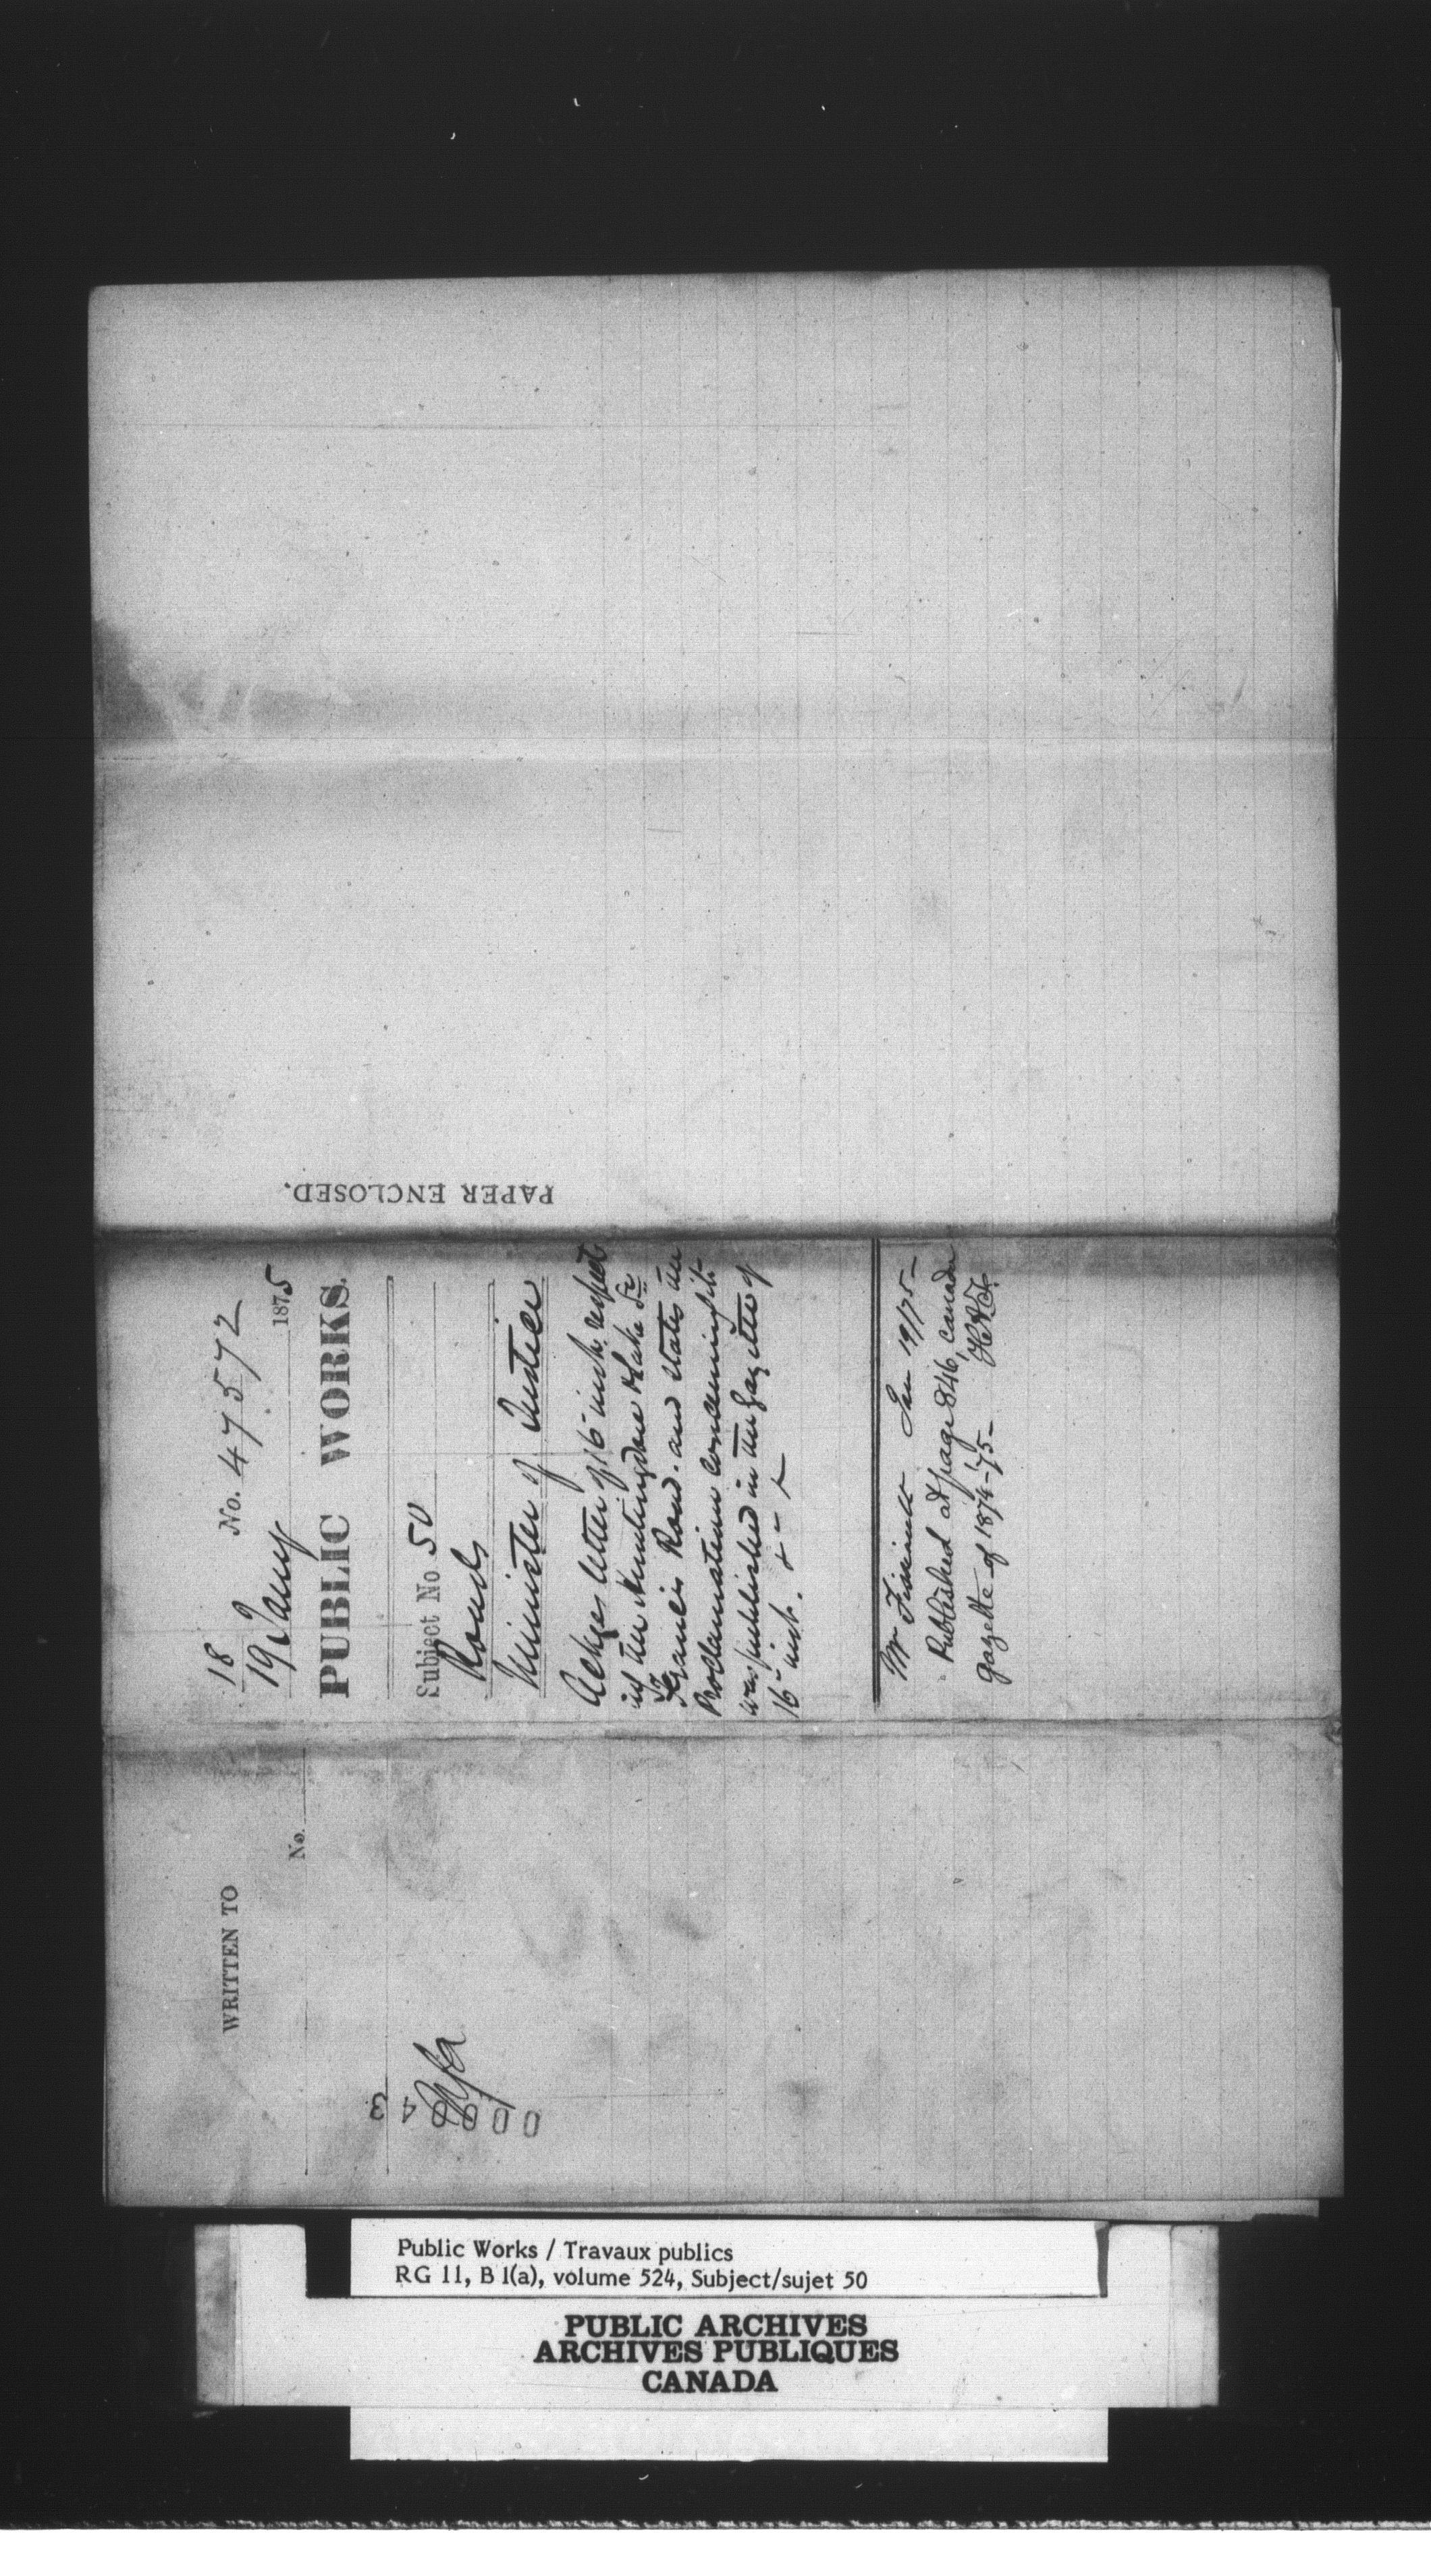 18
No. 47572
19 Jany 1875
PUBLIC WORKS.
Subject No 50
Roads
Minister of Justice
Ackges letter of 16 inst. respect
ing the Huntingdon & Lake St
Francis Road. and states the
Proclamation concerning it
was published in the Gazette of
16 inst.
Mr Jan 19/75 —
Published at page 846, Canada
Gazette of 1874-'75 —
PAPER ENCLOSED.
WRITTEN TO
No.
Public Works / Travaux publics
RG 11, B 1(a), volume 524, Subject/sujet 50
PUBLIC ARCHIVES
ARCHIVES PUBLIQUES
CANADA